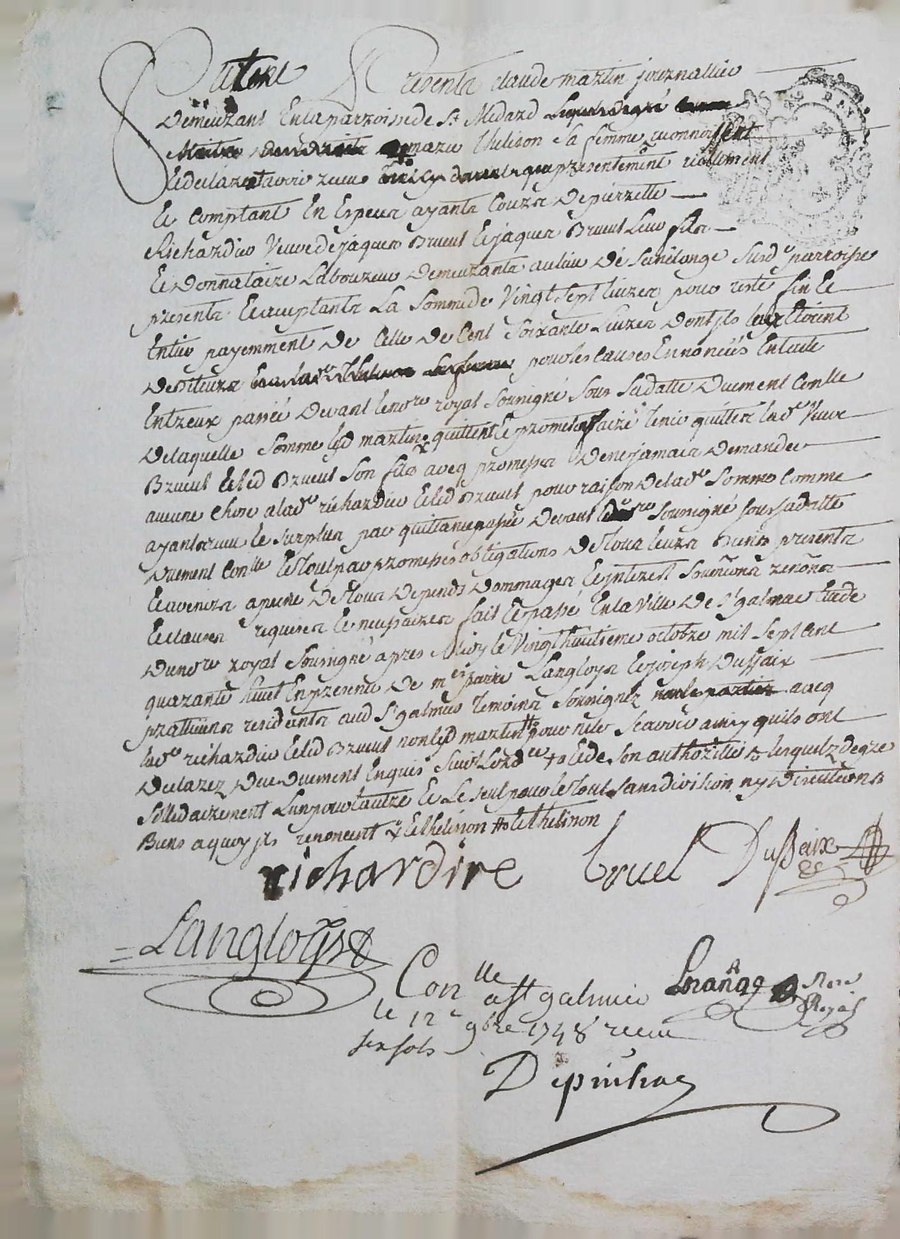 furent presents claude martin journallier
Demeurant En la parroisse de St Medard
marie thelison sa femme
Et declare avoir receu presentement reellement
Et Comptant En Especes ayants Cours De pierrette
Richardire Veuve de jaques Bruel Et jaques Bruel leur fils
Et Donnataire Laboureur Demeurants au lieu de sus de parroisse
presents Et acceptants La Somme de Vingt sept livres pour reste fin Et
Entier payemment De Celle De Cent Soixante Livres Dont ils leurs Etoient
Debiteurs pour les Causes Ennoncées En
Entreux passé Devant le nore royal Soussigné Sous Sa datte Duement Conlle
De laquelle Somme led martin quittent Et promet faire tenir quittes lade Veuve
Bruel Et led Bruel Son fils avec promesses De ne jamais Demander
aucune Chose a lade richardire Et led Bruel pour raison De lade Somme Comme
ayant receu le Surplus par quittance passé Devant led nore Soussigné sous sa datte
Duement Conlle Et le tout par promesses obligations De tous leurs biens presents
Et avenirs a peine De tous Depends Dommages Et interest Soumions renons
Et clauses requises Et necessaires fait Et passé En la Ville De St galmier Etude
Du nore royal Soussigné apres midy le Vingt huitieme octobre mil Sept Cent
quarante huit En presence De mes pierre Langlois Et joseph Dussaix
pratticiens residents aud St galmier temoins Soussignez avec
lade richardire Et led Bruel non led martin pour ne le Scavoir ainsy quils ont
Declarez De ce Duement Enquis Suivt Lordce + Et de Son authorité lesquelz
Sollidairement Lun pour lautre Et Le Seul pour le tout Sans division ny Discution De
Biens a quoy ils renoncent Et thelison Et thelison
richardire bruel Dussaix
Langlois
Conlle a St galmier nore
le 12e 9bre 1748 receu royal
six sols